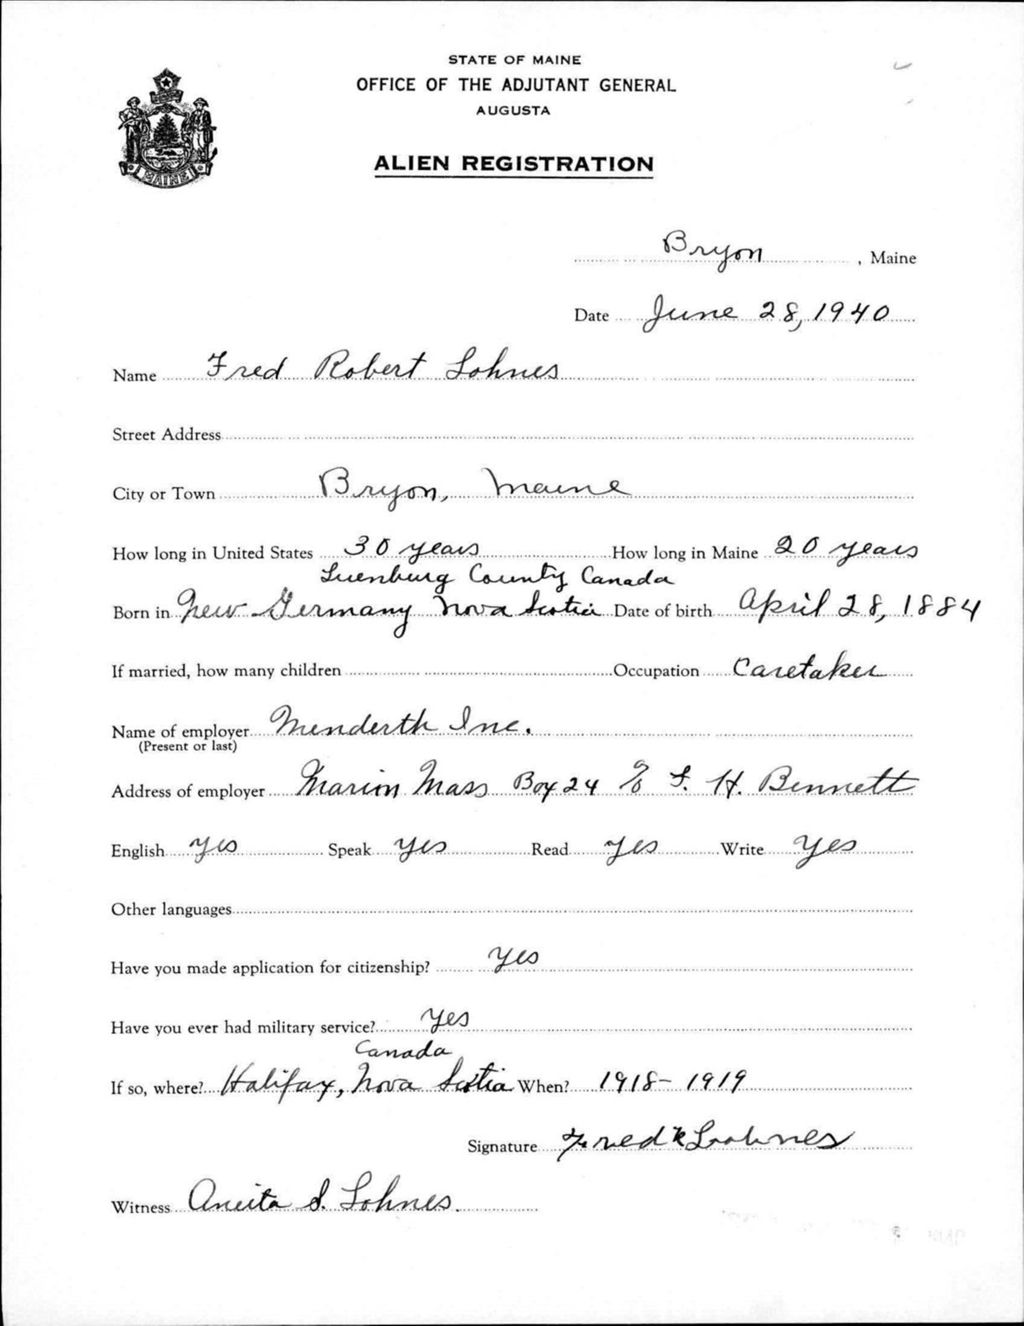 STATE OF MAINE
OFFICE OF THE ADJUTANT GENERAL
AUGUSTA
ALIEN REGISTRATION
MAINE
Bryon, Maine
Date June 28, 1940
Name Fred Robert Lohnes
Street Address
City or Town Bryon, Maine
How long in United States 30 years How long in Maine 20 years
Luenburg County Canada
Born in New Germany Nova Scotia Date of birth April 28, 1884
If married, how many children Occupation Caretaker
Name of employer Menderth Inc.
(Present or last)
Address of employer Marion Mass Box 24 % F. H. Bennett
English yes Speak yes Read yes Write yes
Other languages
Have you made application for citizenship? yes
Have you ever had military service? yes
Canada
If so, where? Halifax, Nova Scotia When? 1918-1919
Signature Fred R Lohnes
Witness Aneita S. Lohnes.